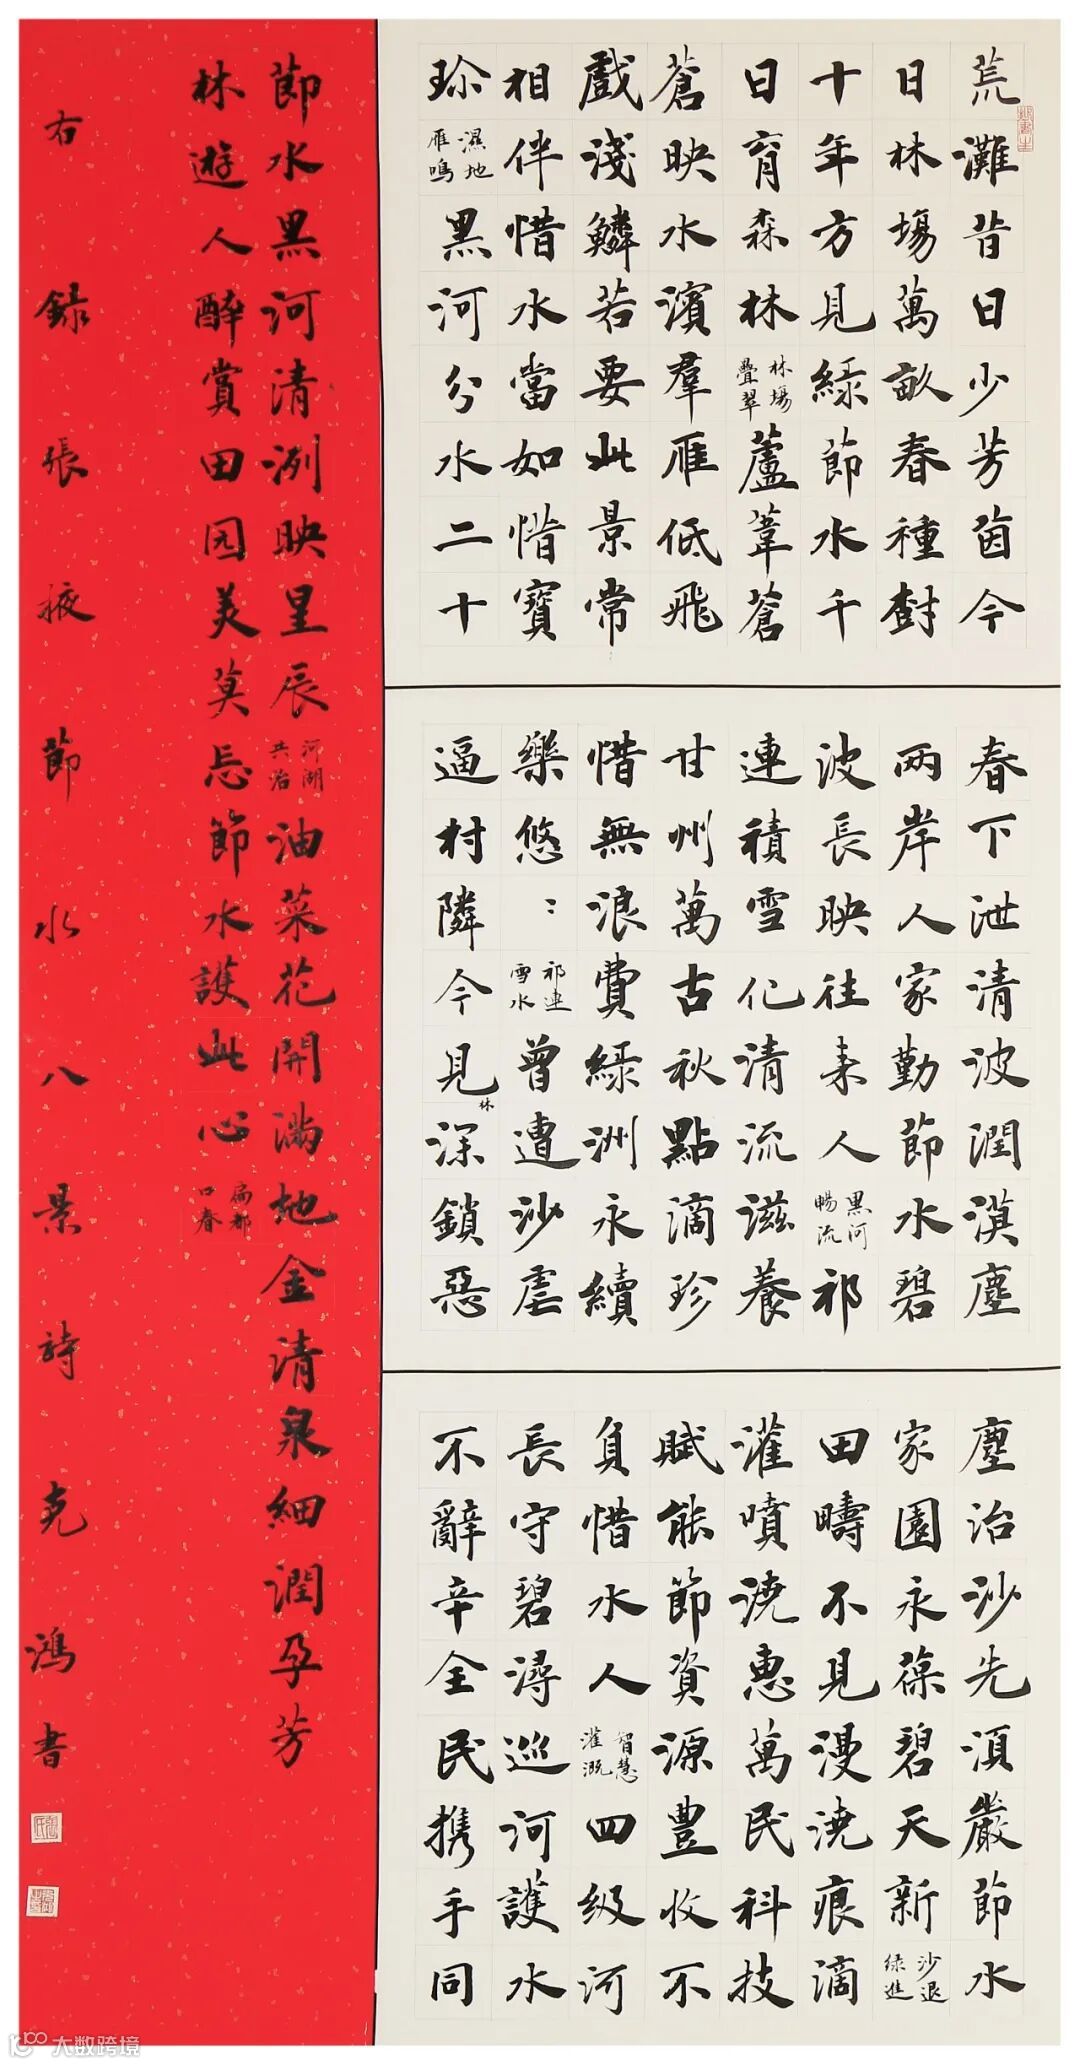 荒灘昔日少芳茵今
日林場萬畝春種樹
十年方見綠節水千
日育森林 林場疊翠 蘆葦蒼
蒼映水濱羣雁低飛
戲淺鱗若要此景常
相伴惜水當如惜寶
珎 濕地雁鳴 黑河分水二十
春下泄清波潤漠塵
兩岸人家勤節水碧
波長映往来人 黑河暢流 祁
連積雪化清流滋養
甘州萬古秋點滴珍
惜無浪費綠洲永續
樂悠〻 祁連雪水 曾遭沙虐
逼村隣今見林深鎖惡
塵治沙先須嚴節水
家園永葆碧天新 沙退綠進
田疇不見漫澆痕滴
灌噴澆惠萬民科技
賦能節資源豐收不
負惜水人 智慧灌溉 四级河
長守碧潯巡河護水
不辭辛全民携手同
節水黑河清洌映星辰 河湖共治 油菜花開滿地金清泉細潤孕芳
林遊人醉賞田园美莫忘節水護此心 扁都口春
右錄張掖節水八景詩克鴻書
大数跨境